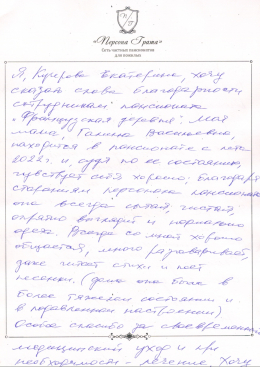 «Персона Грата»
Сеть частных пансионатов
для пожилых
Я, Кугрова Екатерина, хочу
сказать слова благодарности
сотрудникам пансионата
"Французская деревня". Моя
мама, Галина Васильевна,
находится в пансионате с лета
2022г. и, судя по ее состоянию,
чувствует себя хорошо. Благодаря
стараниям персонала пансионата
она всегда сытая, чистая,
опрятно выглядит и нормально
одета. Всегда со мной хорошо
общается, много разговаривает,
даже читает стихи и поет
песенки. (дома она была в
более тяжелом состоянии и
в подавленном настроении)
Особое спасибо за своевременный
медицинский уход и при
необходимости - лечение. Хочу